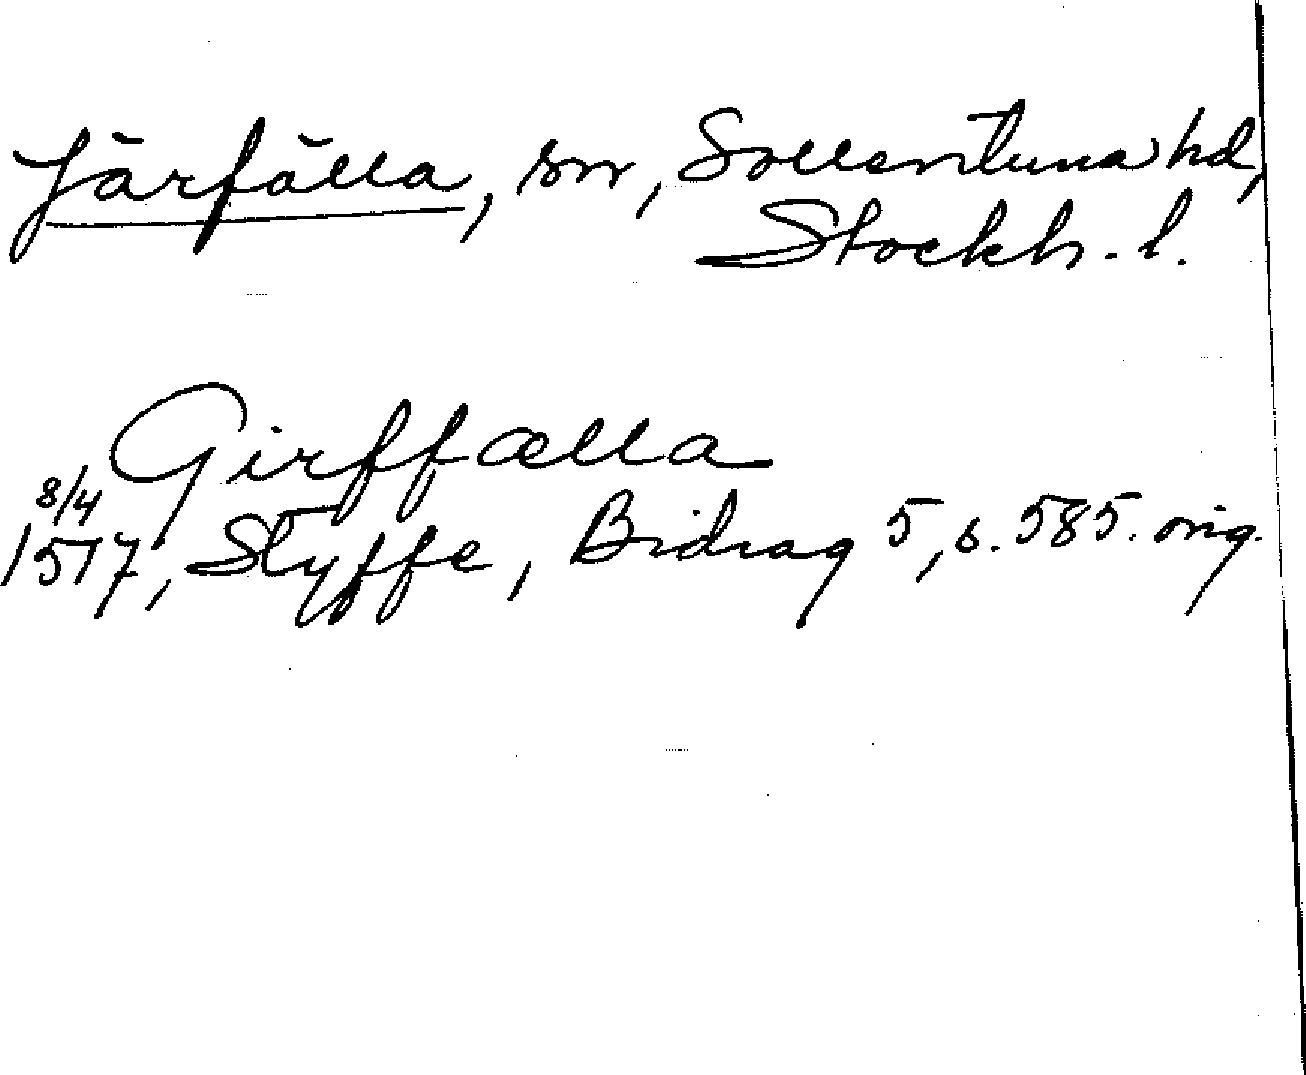 Järfälla, sn, Sollentuna hd,
Stockh. l.
Girffælla
8/4
1517, Styffe, Bidrag 5, s. 585. orig.